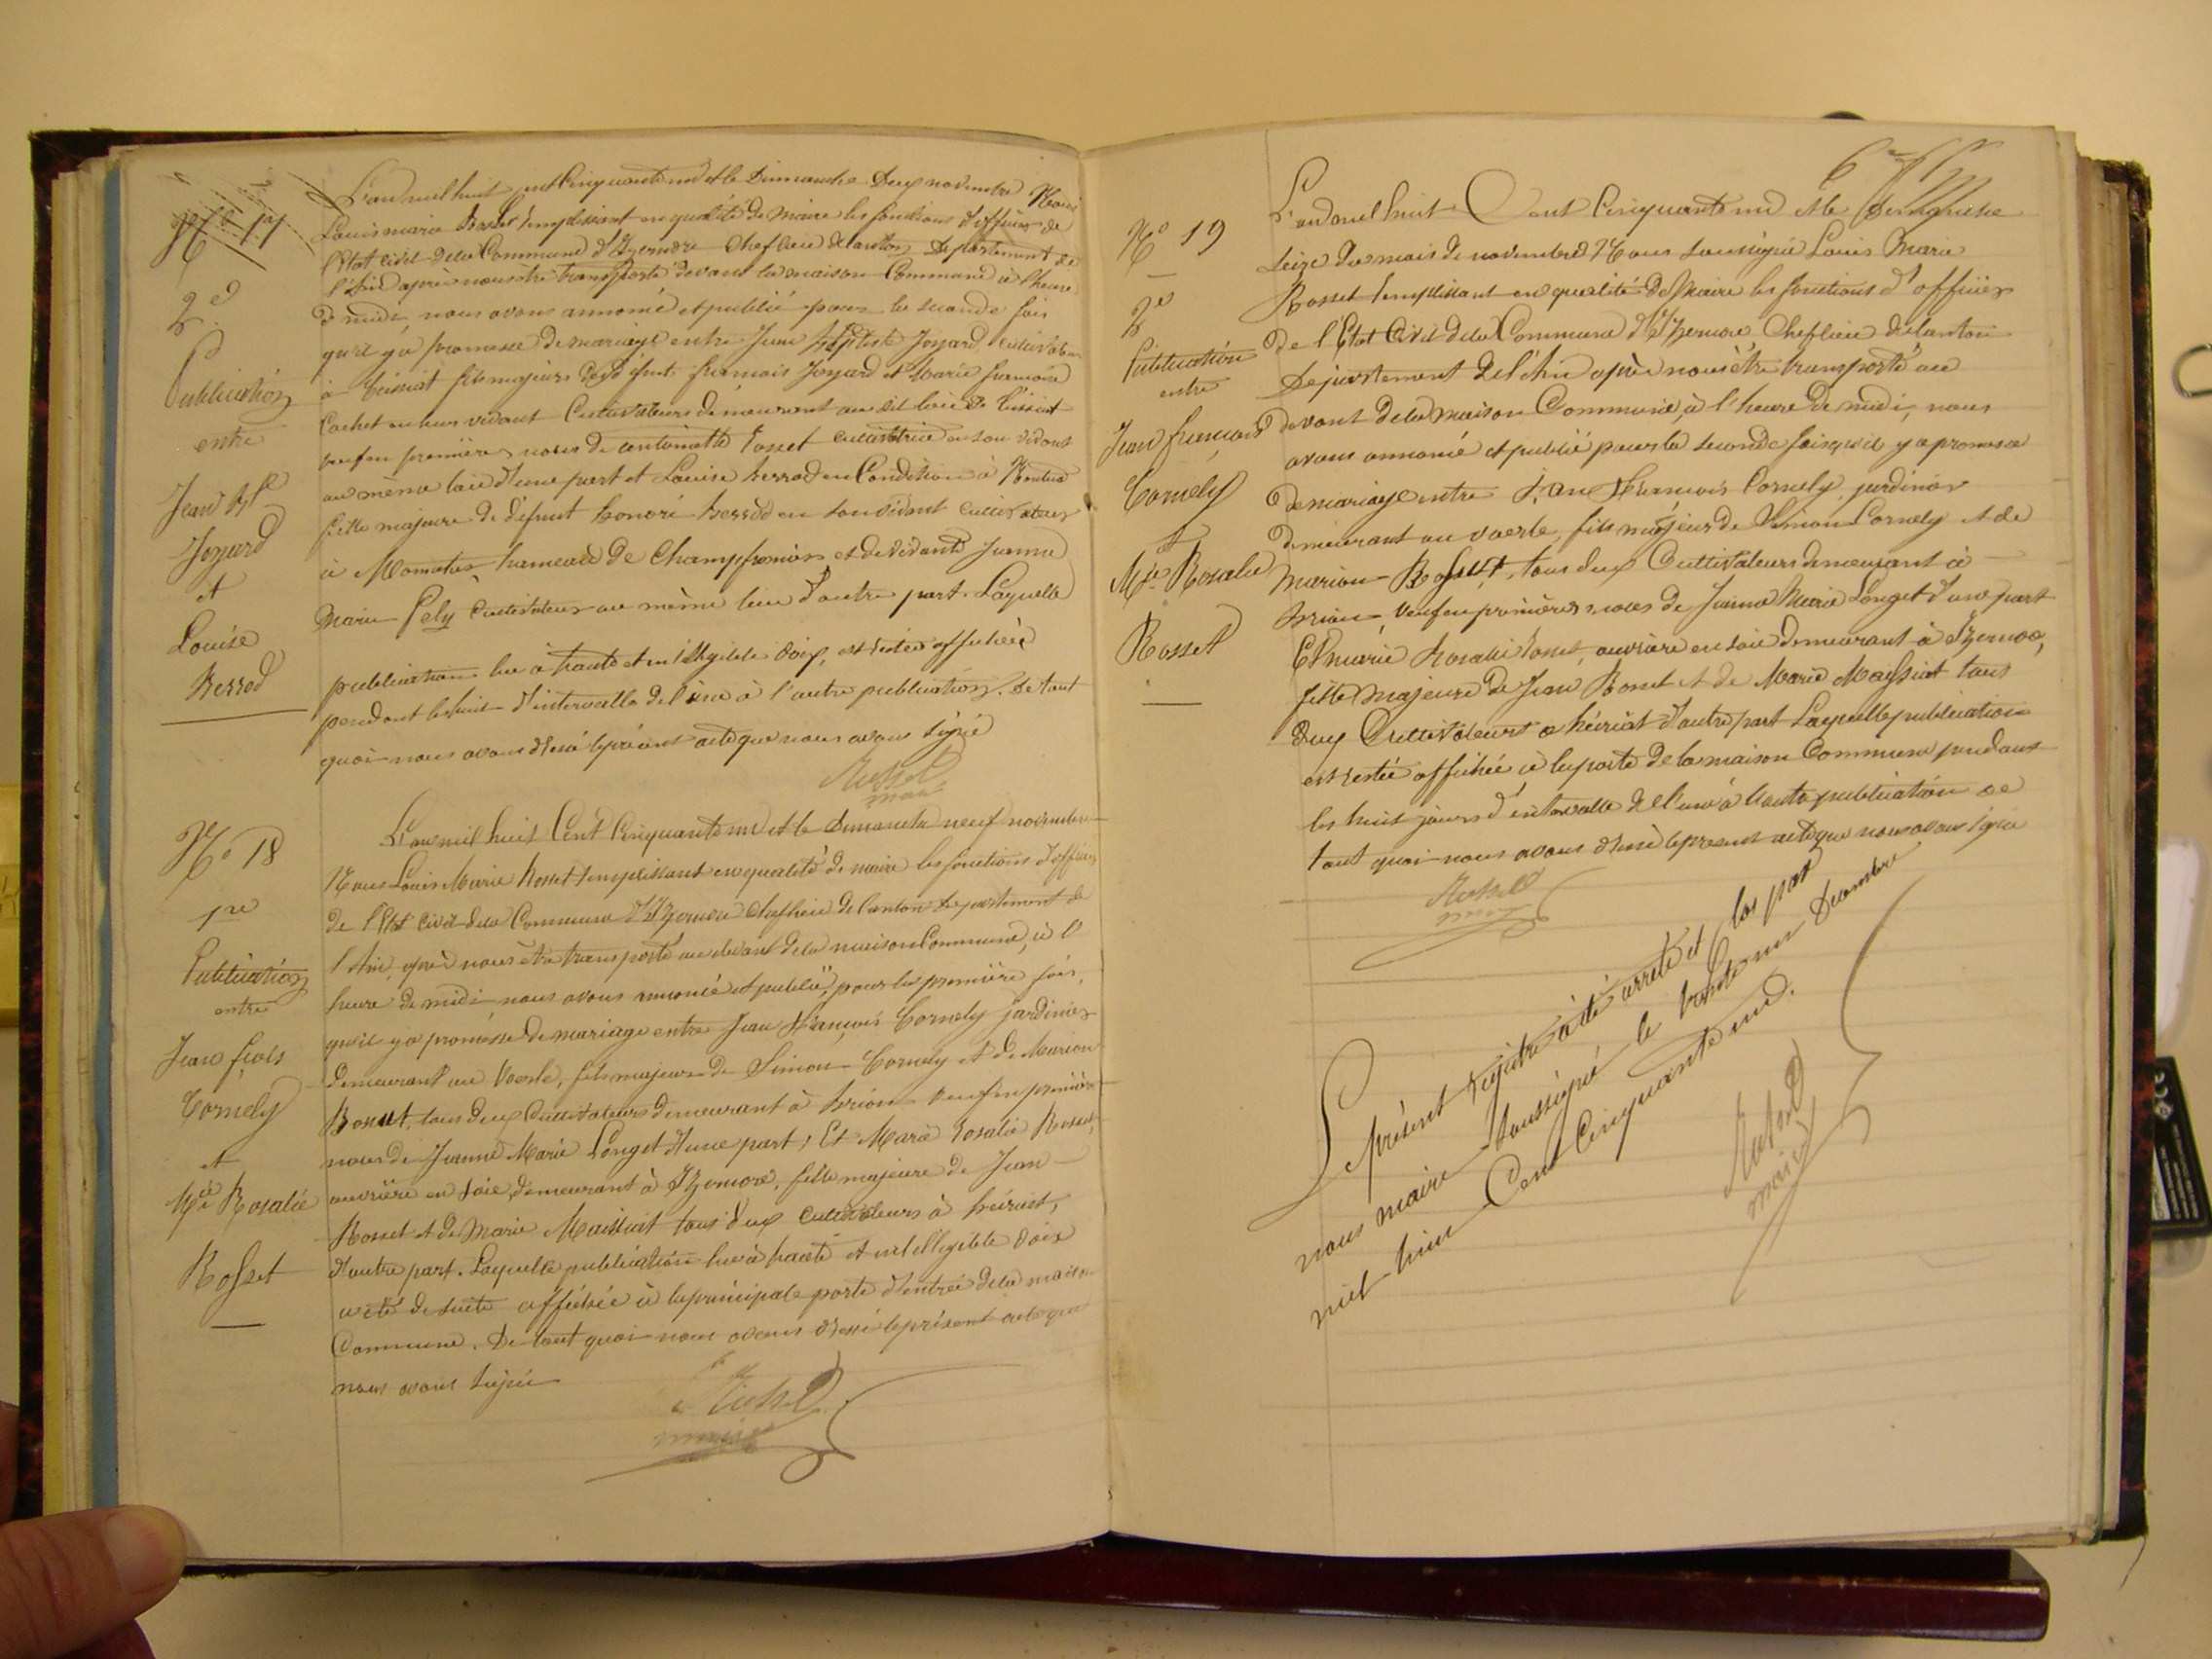 N° 17
2e
Publication
entre
Jean Bte
Joyard
et
Louise
Berrod
L'an mil huit cent cinquante un et le Dimanche Deux novembre Nous
Louis marie Rosset remplissant en qualité de maire les fonctions d'officier de
l'Etat civil de la Commune d'Izernore Chef lieu de canton Département de
l'Ain après nous être transporté devant la maison Commune à l'heure
de midi, nous avons annoncé et publié pour la seconde fois
qu'il y a promesse de mariage entre Jean Baptiste Joyard, cultivateur
à Ceissiat fils majeur de défunt françois Joyard et Marie françoise
Cochet en leur vivant Cultivateurs demeurant au dit lieu de Ceissiat
veuf en premières noces de antoinette Rosset cultivatrice en son vivant
au même lieu d'une part et Louise berrod en Condition à Nantua
fille majeure de défunt honoré berrod en son vivant cultivateur
à Monetier hameau de Champfromier et de vivante Jeanne
Marie Pely cultivateur au même lieu d'autre part. Laquelle
publication lue à haute et intelligible voix, est restée affichée
pendant les huit d'intervalle de l'une à l'autre publication. De tout
quoi nous avons dressé le présent acte que nous avons signé
Rosset
maire
N° 18
1re
Publication
entre
Jean fçois
Cornely
et
Mie Rosalie
Rosset
L'an mil huit Cent Cinquante un et le Dimanche neuf novembre
Nous Louis Marie Rosset remplissant en qualité de maire les fonctions d'officier
de l'Etat civil de la Commune d'Izernore Chef lieu de Canton département de
l'Ain, après nous être transporté au devant de la maison Commune, à l'
heure de midi nous avons annoncé et publié, pour la première fois,
qu'il y a promesse de mariage entre Jean François Cornely jardinier
demeurant au Voerle, fils majeur de Simon Cornely et de Marion
Bossut, tous deux Cultivateurs demeurant à brion veuf en première
noces de Jeanne Marie Longet d'une part; Et Marie Rosalie Rosset,
ouvrière en soie, demeurant à Izernore, fille majeure de Jean
Rosset et de Marie Maissiat tous deux cultivateurs à heiriat,
d'autre part. Laquelle publication lue à haute et intelligible voix
a été de suite affichée à la principale porte d'entrée de la maison
Commune. De tout quoi nous avons dressé le présent acte que
nous avons signé
Rosset
maire
6me
N° 19
2e
Publication
entre
Jean françois
Cornely
et
Mie Rosalie
Rosset
L'an mil huit Cent Cinquante un et le Dimanche
seize du mois de novembre Nous soussigné Louis Marie
Rosset remplissant en qualité de Maire les fonctions d'officier
de l'Etat Civil de la Commune d'Izernore Chef lieu de canton
Département de l'Ain après nous être transporté au
devant de la maison Commune, à l'heure de midi, nous
avons annoncé et publié pour la seconde fois qu'il y a promesse
de mariage entre Jean François Cornely, jardinier
demeurant au voerle, fils majeur de Simon Cornely et de
Marion Bossut, tous deux Cultivateurs demeurant à
brion, veuf en premières noces de Jeanne Marie Longet d'une part
Et marie Rosalie Rosset, ouvrière en soie demeurant à Izernore,
fille majeure de Jean Rosset et de Marie Maissiat tous
deux Cultivateurs a heiriat d'autre part Laquelle publication
est restée affichée à la porte de la maison Commune pendant
les huit jours d'intervalle de l'une à l'autre publication de
tout quoi nous avons dressé le présent acte que nous avons signé
Rosset
maire
Le présent registre a été arrêté et clos par
nous maire soussigné, le trente un Décembre
mil huit Cent Cinquante un.
Rosset
maire